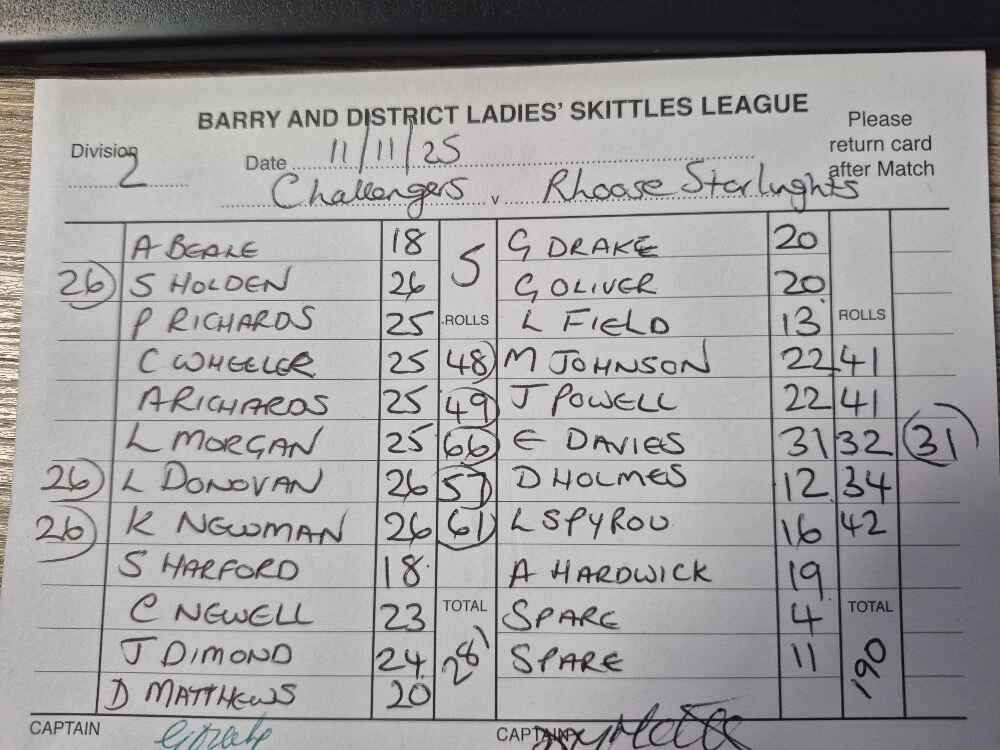 BARRY AND DISTRICT LADIES' SKITTLES LEAGUE
Division 2 Date 11/11/25 Please return card after Match
Challengers v Rhoose Starlughts
A BEALE 18 5 G DRAKE 20
26 S HOLDEN 26 G OLIVER 20
P RICHARDS 25 ROLLS L FIELD 13 ROLLS
C WHEELER 25 48 M JOHNSON 22 41
A RICHARDS 25 49 J POWELL 22 41
L MORGAN 25 66 E DAVIES 31 32 31
26 L DONOVAN 26 57 D HOLMES 12 34
26 K NEWMAN 26 61 L SPYROU 16 42
S HARFORD 18 A HARDWICK 19
C NEWELL 23 TOTAL SPARE 4 TOTAL
J DIMOND 24 281 SPARE 11 190
D MATTHEWS 20
CAPTAIN CAPTAIN